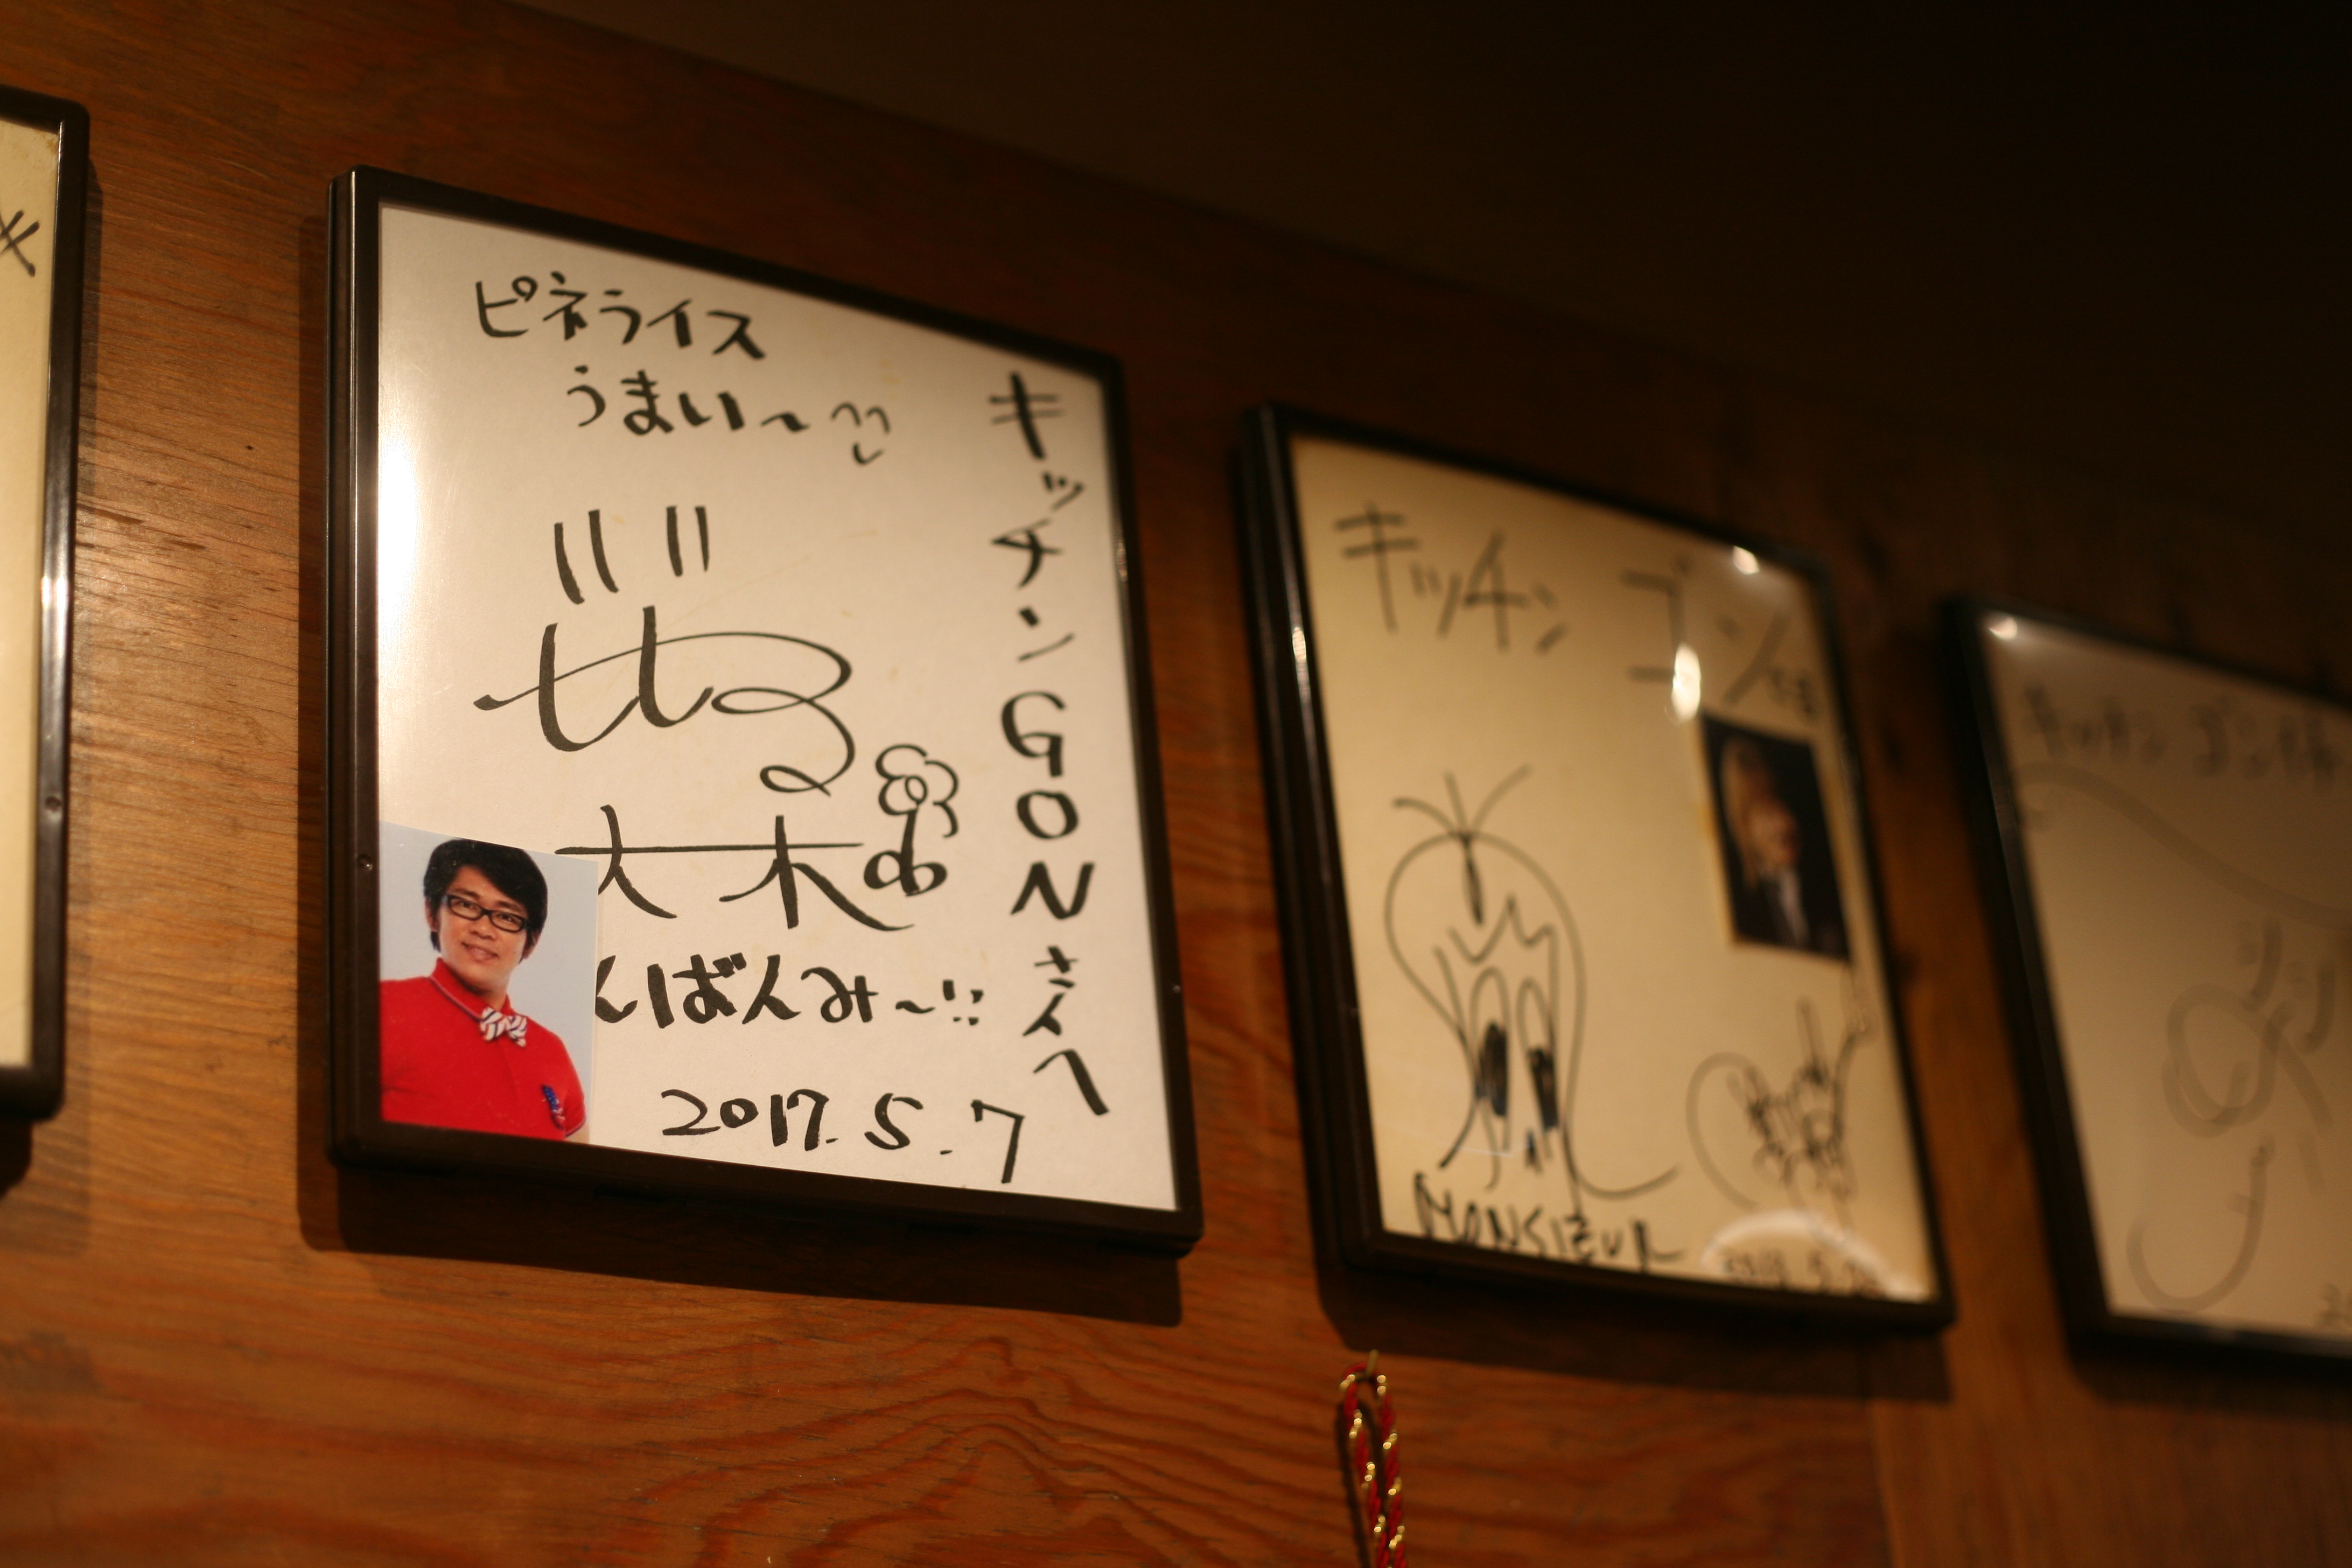 ピネライス
うまい〜
キッチンGONさんへ
大木
んばんみ〜!!
2017.5.7
キッチン ゴン様
MONSIEUR
キッチン ゴン様